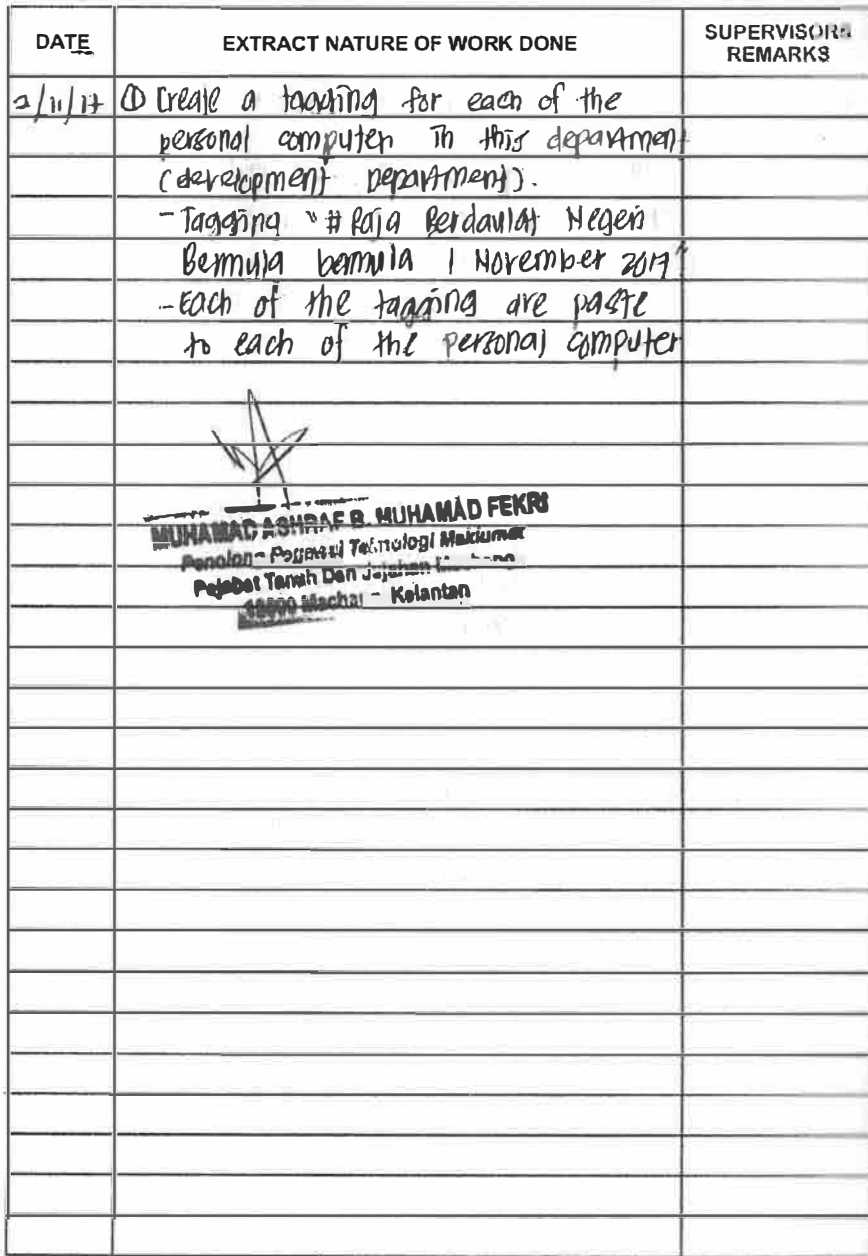 DATE EXTRACT NATURE OF WORK DONE SUPERVISORS REMARKS
2/11/17 ① Create a taggting for each of the
personal computer in this department
(development department).
- Tagging "# Raja Berdaulat Negeri
Bermula bermula 1 November 2017"
- Each of the tagging are paste
to each of the personal computer
MUHAMAD ASHRAF B. MUHAMAD FEKRI
Penolong Pegawai Teknologi Maklumat
Pejabat Tanah Dan Jajahan
18500 Machang - Kelantan